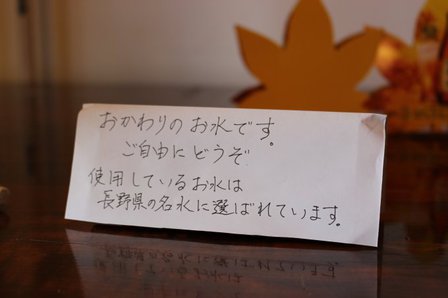 おかわりのお水です。
ご自由にどうぞ
使用しているお水は
長野県の名水に選ばれています。